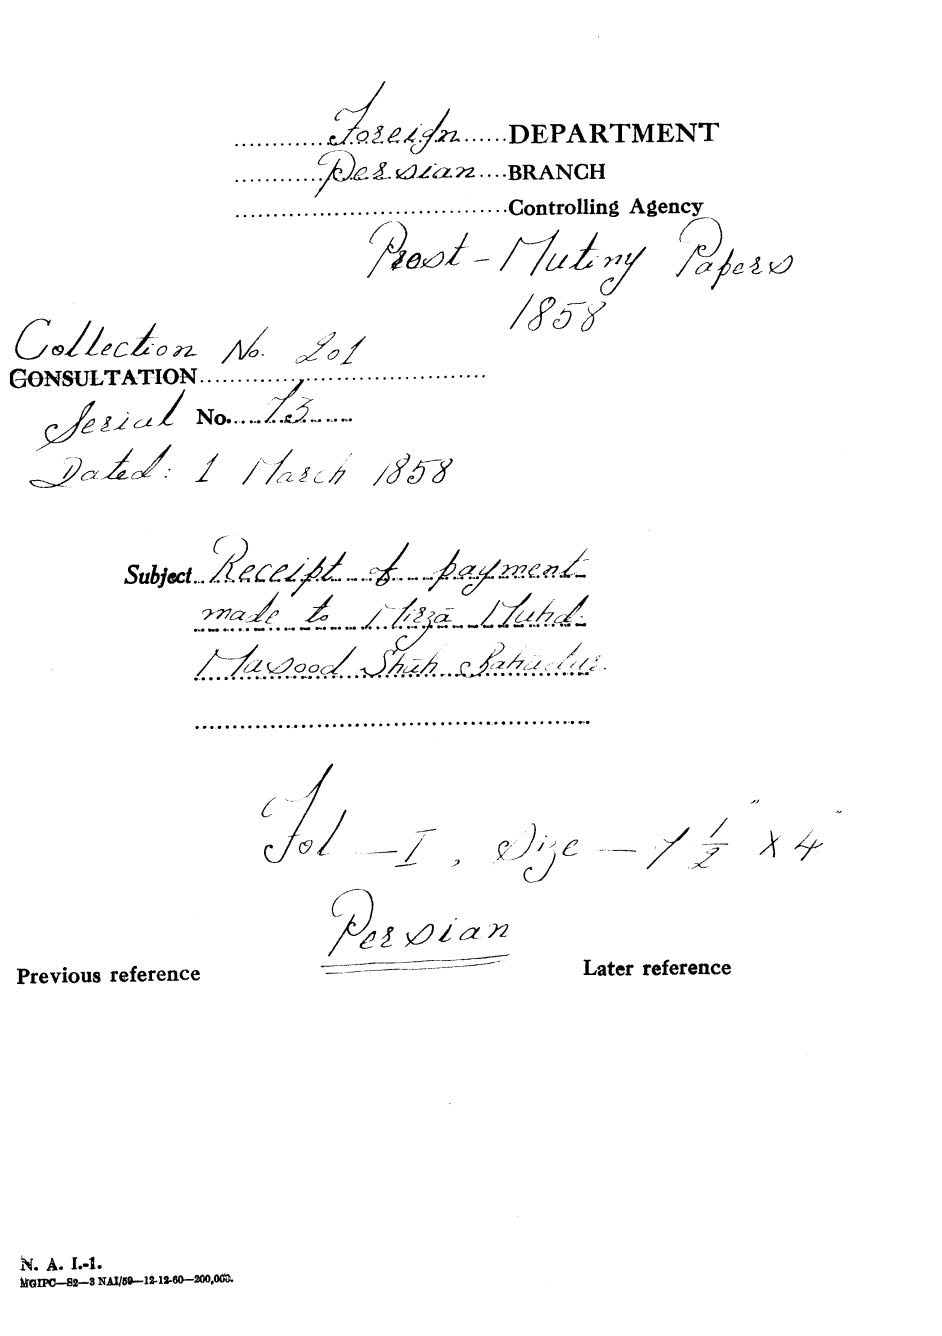 Foreign DEPARTMENT
Persian BRANCH
Controlling Agency
Post - Mutiny Papers
1858
Collection No. 201
CONSULTATION
Serial No. 73
Dated: 1 March 1858
Subject Receipt of payment
made to Mirzā Muhd.
Masood Shāh Bahādur.
Fol - I, Size - 7 1/2" x 4"
Persian
Previous reference
Later reference
N. A. I.-1.
MGIPC—S2—3 NAI/59—12-12-60—200,000.